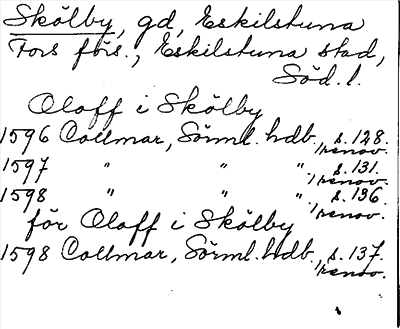 Skölby, gd, Eskilstuna
Fors förs., Eskilstuna stad,
Söd. l.
Oloff i Skölby
1596 Collmar, Sörml. hdb., s. 128.
1/renov.
1597 " " " s. 131.
1/renov.
1598 " " " s. 136.
1/renov.
för Oloff i Skölby
1598 Collmar, Sörml. hdb., s. 137.
1/renov.